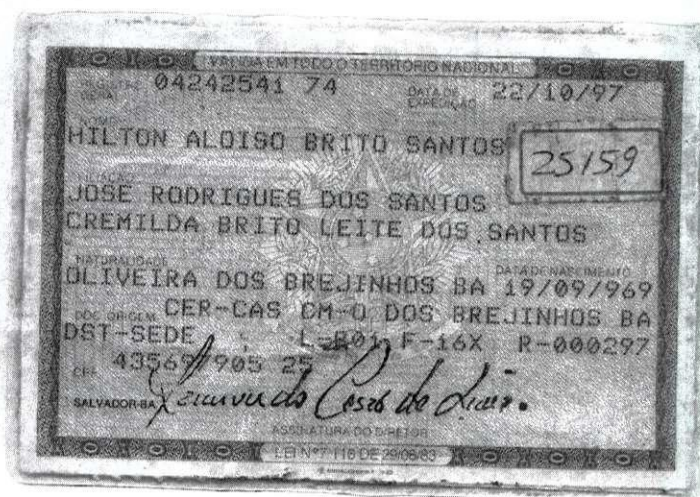 VÁLIDA EM TODO O TERRITÓRIO NACIONAL
REGISTRO GERAL 04242541 74 DATA DE EXPEDIÇÃO 22/10/97
NOME
HILTON ALOISO BRITO SANTOS
25159
FILIAÇÃO
JOSE RODRIGUES DOS SANTOS
CREMILDA BRITO LEITE DOS SANTOS
NATURALIDADE DATA DE NASCIMENTO
OLIVEIRA DOS BREJINHOS BA 19/09/969
DOC ORIGEM CER-CAS CM-O DOS BREJINHOS BA
DST-SEDE L-B01 F-16X R-000297
CPF 43569 905 25
SALVADOR-BA
ASSINATURA DO DIRETOR
LEI Nº 7.116 DE 29/08/83